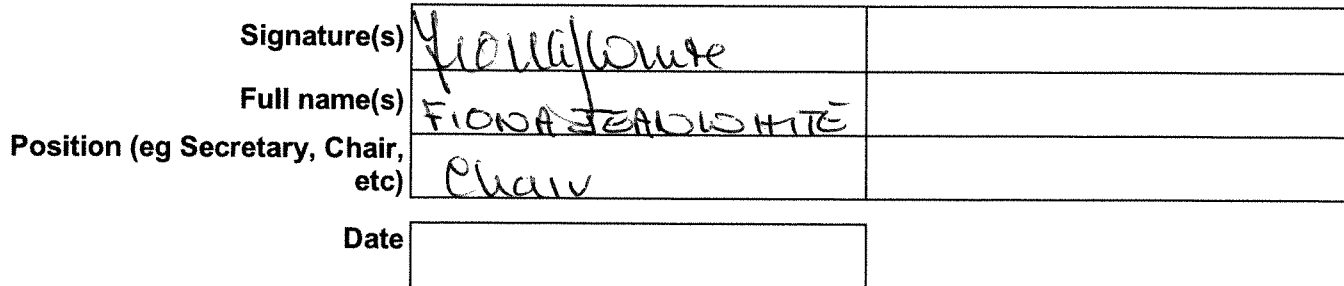 Signature(s) Fiona J White
Full name(s) FIONA JEAN WHITE
Position (eg Secretary, Chair,
etc) Chair
Date